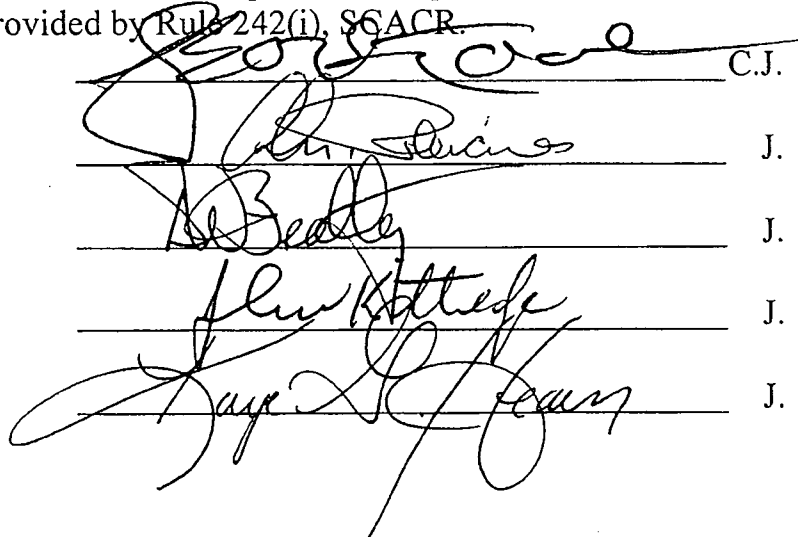 rovided by Rule 242(i), SCACR.
C.J.
Pleicones J.
Beatty J.
John Kittredge J.
Kaye G. Hearn J.